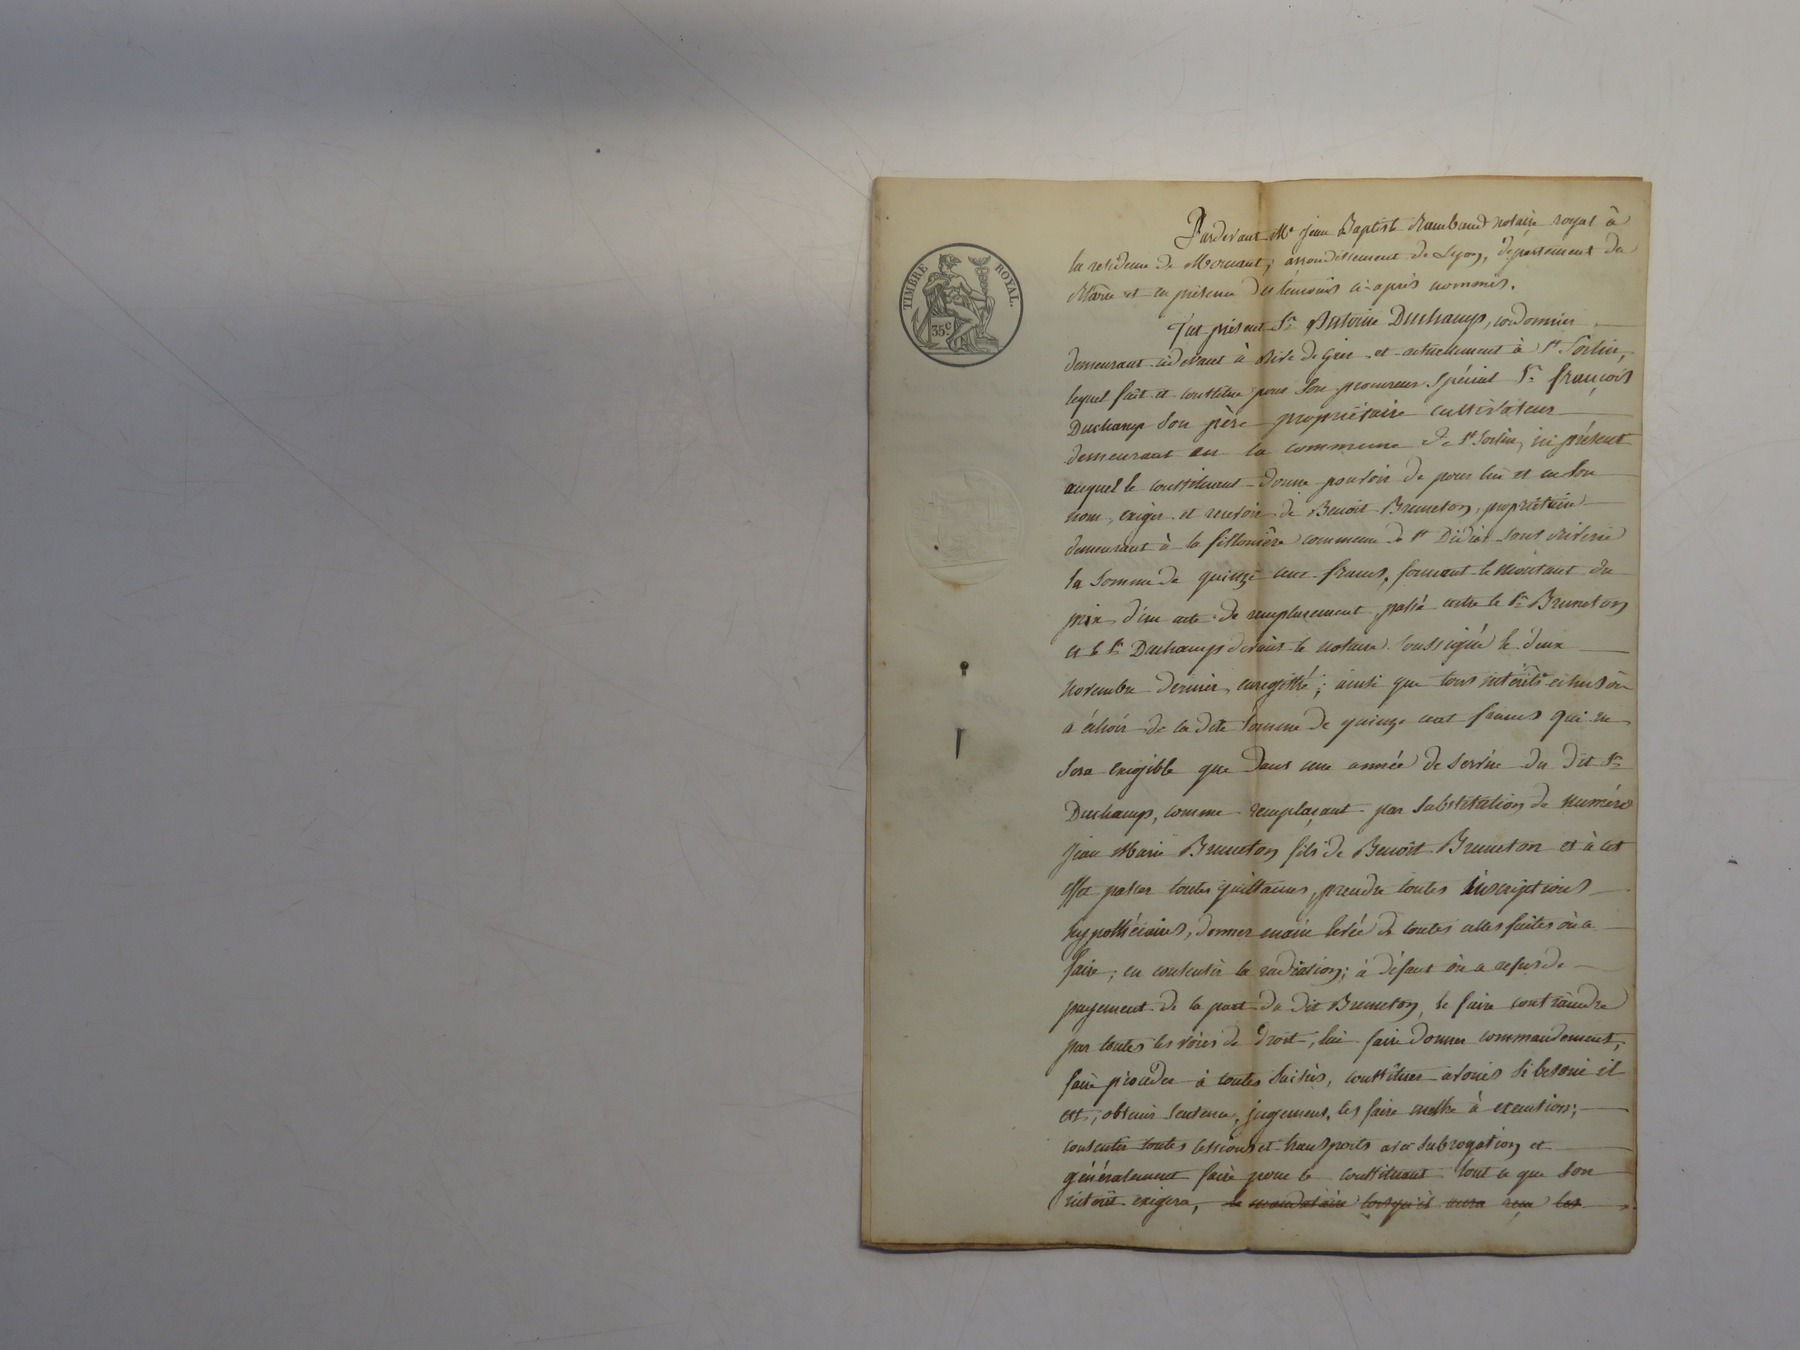 TIMBRE ROYAL.
35c
Pardevant Me Jean Baptiste Rambaud notaire royal à
la residence de Mornant, arrondissement de Lyon, département du
Rhône et en présence des témoins ci-après nommés.
Fut présent Sr Antoine Duchamp, cordonnier
demeurant cidevant à Rive de Gier et actuellement à St Sorlin,
lequel fait et constitue pour son procureur spécial Sr François
Duchamp son père propriétaire cultivateur
demeurant en la commune de St Sorlin, ici présent
auquel le constituant donne pouvoir de pour lui et en son
nom, exiger et recevoir de Benoit Bruneton, propriétaire
demeurant à la fillonière commune de St Didier sous Riverie
la somme de quinze cent francs, formant le montant du
prix d'un acte de remplacement passé entre le Sr Bruneton
et le Sr Duchamp devant le notaire soussigné le deux
novembre dernier, enregistré; ainsi que tous intérêts échus ou
à échoir de la dite somme de quinze cent francs qui ne
sera exigible que dans une année de service du dit Sr
Duchamp, comme remplaçant par substitution de numéro
Jean Marie Bruneton fils de Benoit Bruneton et à cet
effet passer toutes quittances, prendre toutes inscriptions
hypothécaires, donner main levée de toutes celles faites ou a
faire; en consentir la radiation; à défaut ou a refus de
payement de la part du dit Bruneton, le faire contraindre
par toutes les voies de droit, lui faire donner commandement,
faire procéder à toutes saisies, constituer avoués si besoin il
est, obtenir sentence, jugement, les faire mettre à execution;
consentir toutes cessions et transports avec subrogation et
généralement faire pour le constituant tout ce que son
intérêt exigera, le mandataire lorsqu'il aura reçu les